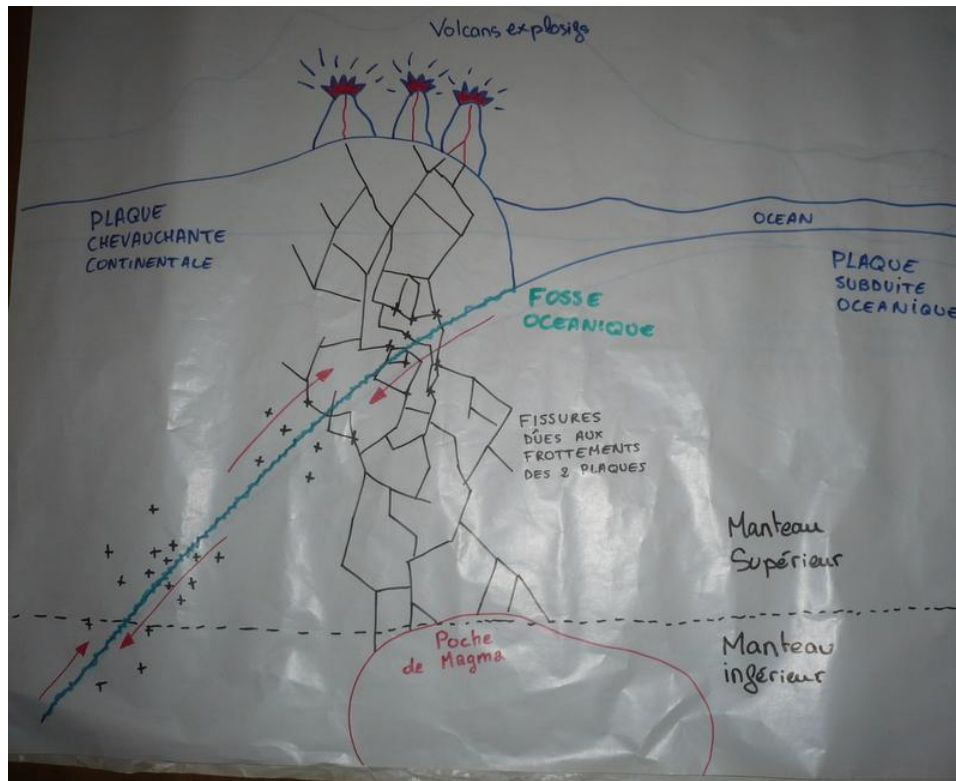 Volcans explosifs
PLAQUE
CHEVAUCHANTE
CONTINENTALE
OCEAN
PLAQUE
SUBDUITE
OCEANIQUE
FOSSE
OCEANIQUE
FISSURES
DÛES AUX
FROTTEMENTS
DES 2 PLAQUES
Manteau
Supérieur
Poche
de Magma
Manteau
inférieur